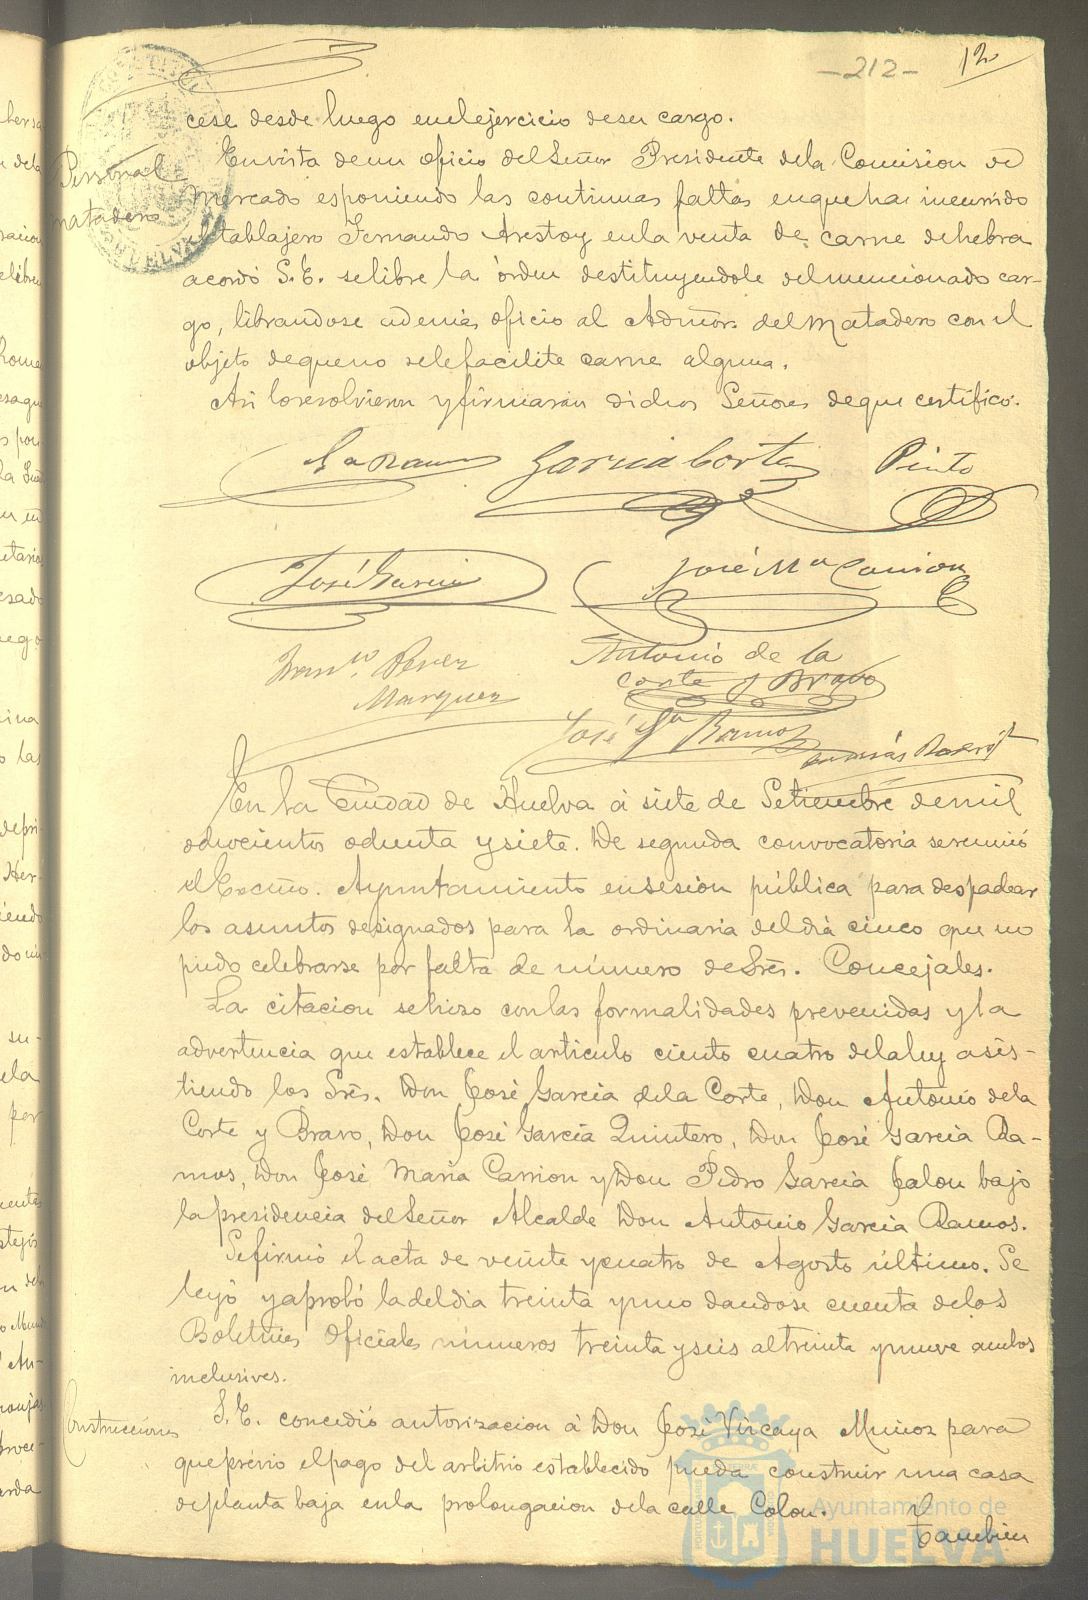 -212- 12
cese desde luego en el ejercicio de su cargo.
Personal
matadero
En vista de un oficio del Señor Presidente de la Comision de
Mercado esponiendo las continuas faltas en que ha incurrido
el tablajero Fernando Arestoy en la venta de carne de hebra
acordó S.E. se libre la órden destituyendole del mencionado car-
go, librandose ademas oficio al Admor. del Matadero con el
objeto de que no se le facilite carne alguna.
Asi lo resolvieron y firmarán dichos Señores de que certifico.
Ga Ramos Garcia Corte Pinto
José Garcia José Mª Carrion
Franco. Perez
Marquez
Antonio de la
Corte y Bravo
José Ga Ramos
En la Ciudad de Huelva á siete de Setiembre de mil
ochocientos ochenta y siete. De segunda convocatoria se reunió
el Excmo. Ayuntamiento en sesion pública para despachar
los asuntos designados para la ordinaria del dia cinco que no
pudo celebrarse por falta de número de Sres. Concejales.
La citacion se hizo con las formalidades prevenidas y la
advertencia que establece el articulo ciento cuatro de la ley asis-
tiendo los Sres. Don José Garcia de la Corte, Don Antonio de la
Corte y Bravo, Don José Garcia Quintero, Don José Garcia Ra-
mos, Don José Maria Carrion y Don Pedro Garcia Jalon bajo
la presidencia del Señor Alcalde Don Antonio Garcia Ramos.
Se firmó el acta de veinte y cuatro de Agosto último. Se
leyó y aprobó la del dia treinta y uno dandose cuenta de los
Boletines Oficiales números treinta y seis al treinta y nueve ambos
inclusives.
Construcciones
S.E. concedió autorizacion á Don José Vizcaya Muñoz para
que prévio el pago del arbitrio establecido pueda construir una casa
de planta baja en la prolongacion de la calle Colon.
Tambien
Ayuntamiento de
HUELVA